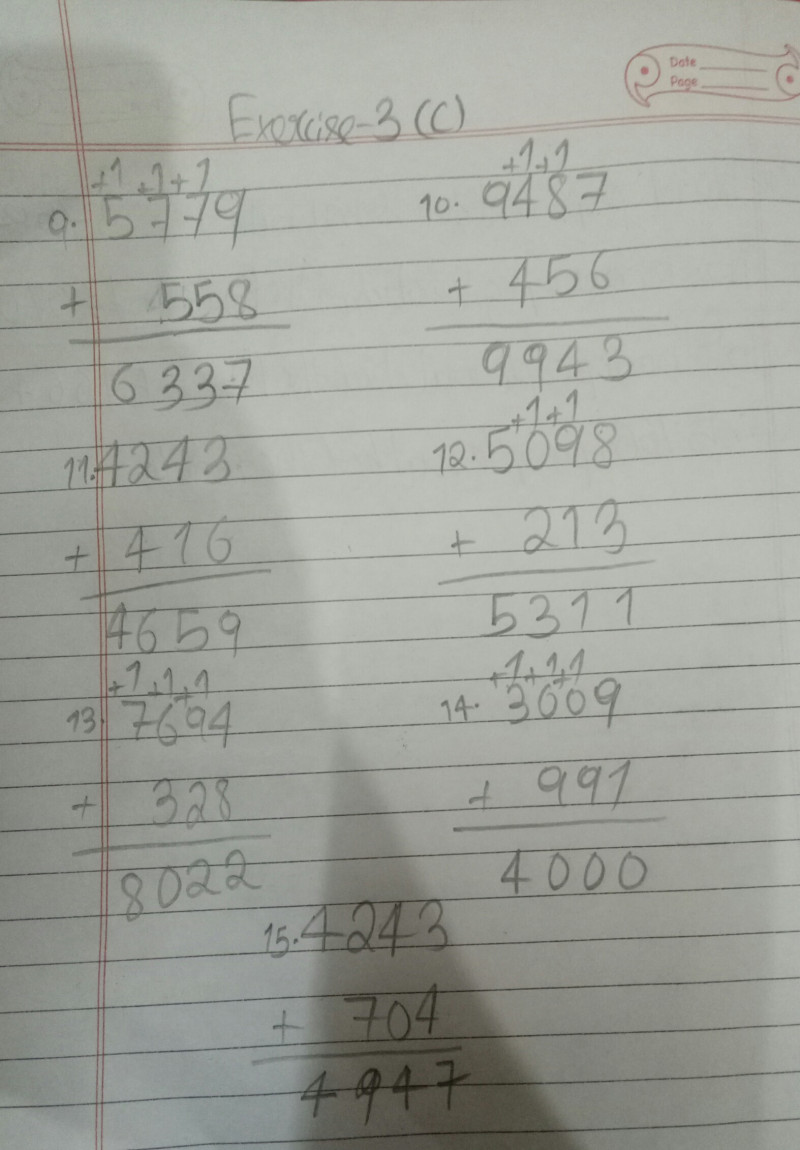 Date
Page
Exercise-3 (C)
+1 +1 +1
9. 5779
+ 558
6337
+1 +1
10. 9487
+ 456
9943
11. 4243
+ 416
4659
+1 +1
12. 5098
+ 213
5311
+1 +1 +1
13. 7694
+ 328
8022
+1 +1 +1
14. 3009
+ 991
4000
15. 4243
+ 704
4947